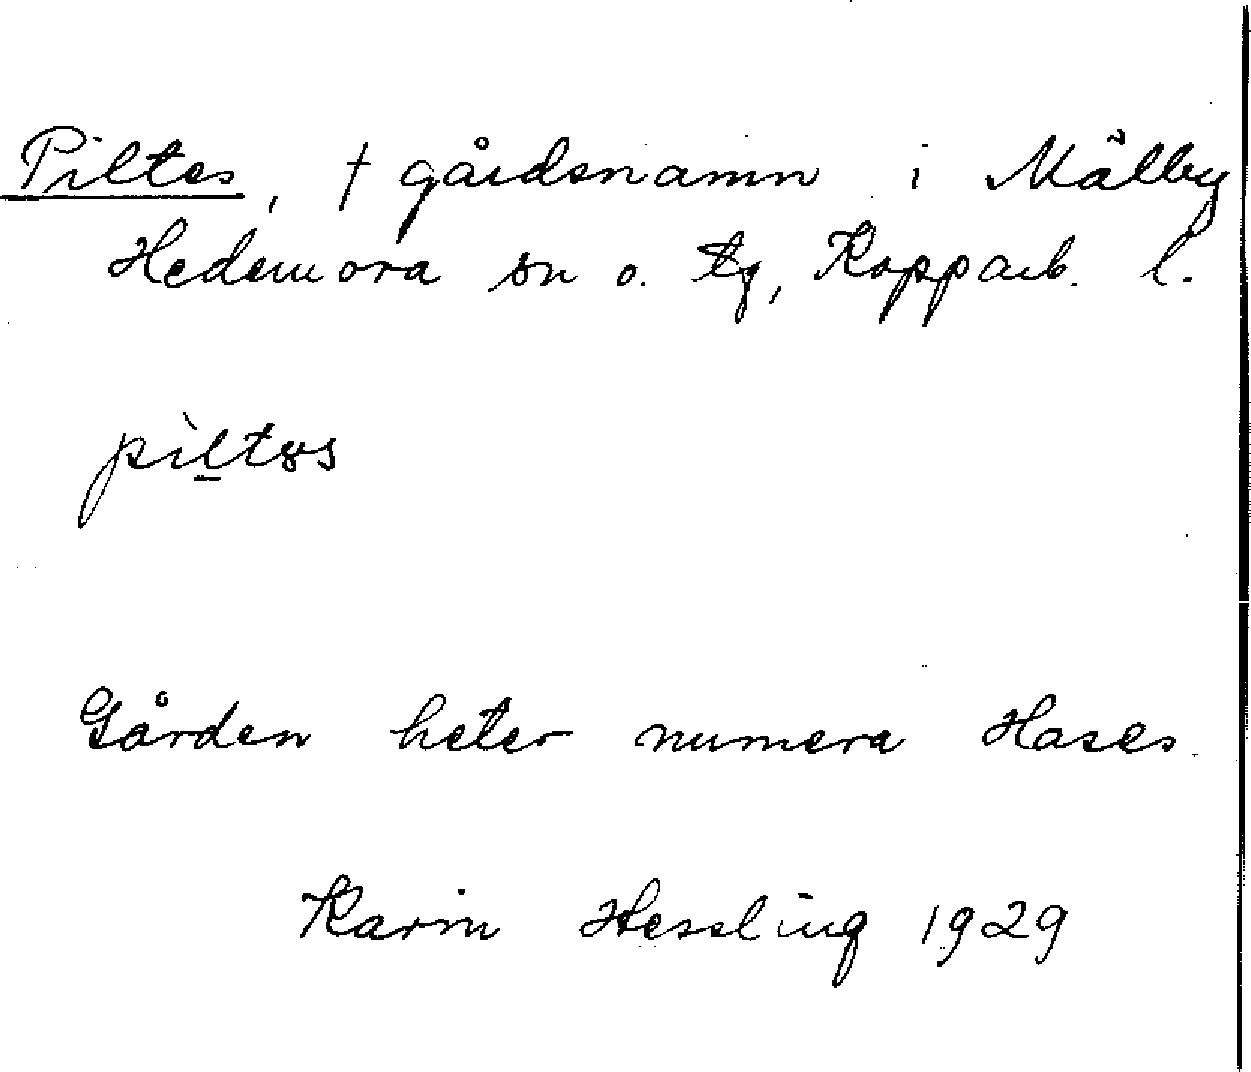 Piltes, † gårdsnamn i Mälby
Hedemora sn o. tg, Kopparb. l.
pìltɤs
Gården heter numera Hases.
Karin Hessling 1929